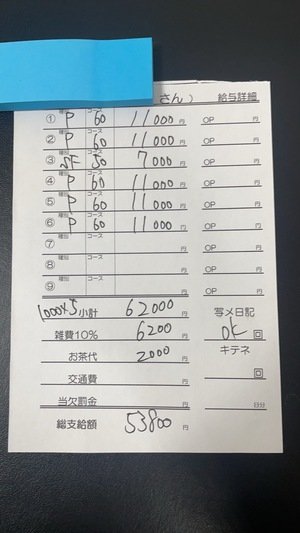 さん） 給与詳細
① 種別 P コース 60 11000円 OP 円
② 種別 P コース 60 11000円 OP 円
③ 種別 コース 50 7000円 OP 円
④ 種別 P コース 60 11000円 OP 円
⑤ 種別 P コース 60 11000円 OP 円
⑥ 種別 P コース 60 11000円 OP 円
⑦ 種別 コース 円 OP 円
⑧ 種別 コース 円 OP 円
⑨ 種別 コース 円 OP 円
1000×5 小計 62000円 写メ日記
雑費10% 6200円 OK 回
お茶代 2000円 キテネ
交通費 円 回
当欠罰金 円 日分
総支給額 53800円